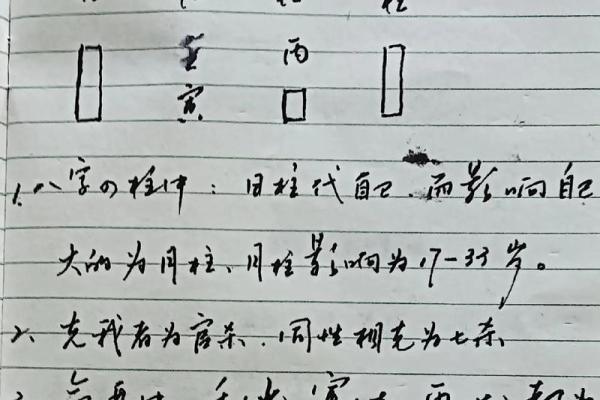 壬 丙
寅
1. 八字四柱中：日柱代自己. 而影响自己
大的为月柱、月柱影响为17-33岁。
2、克我者为官杀. 同性相克为七杀,